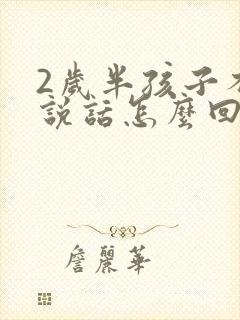 2歲半孩子
說話怎麼回
詹麗華